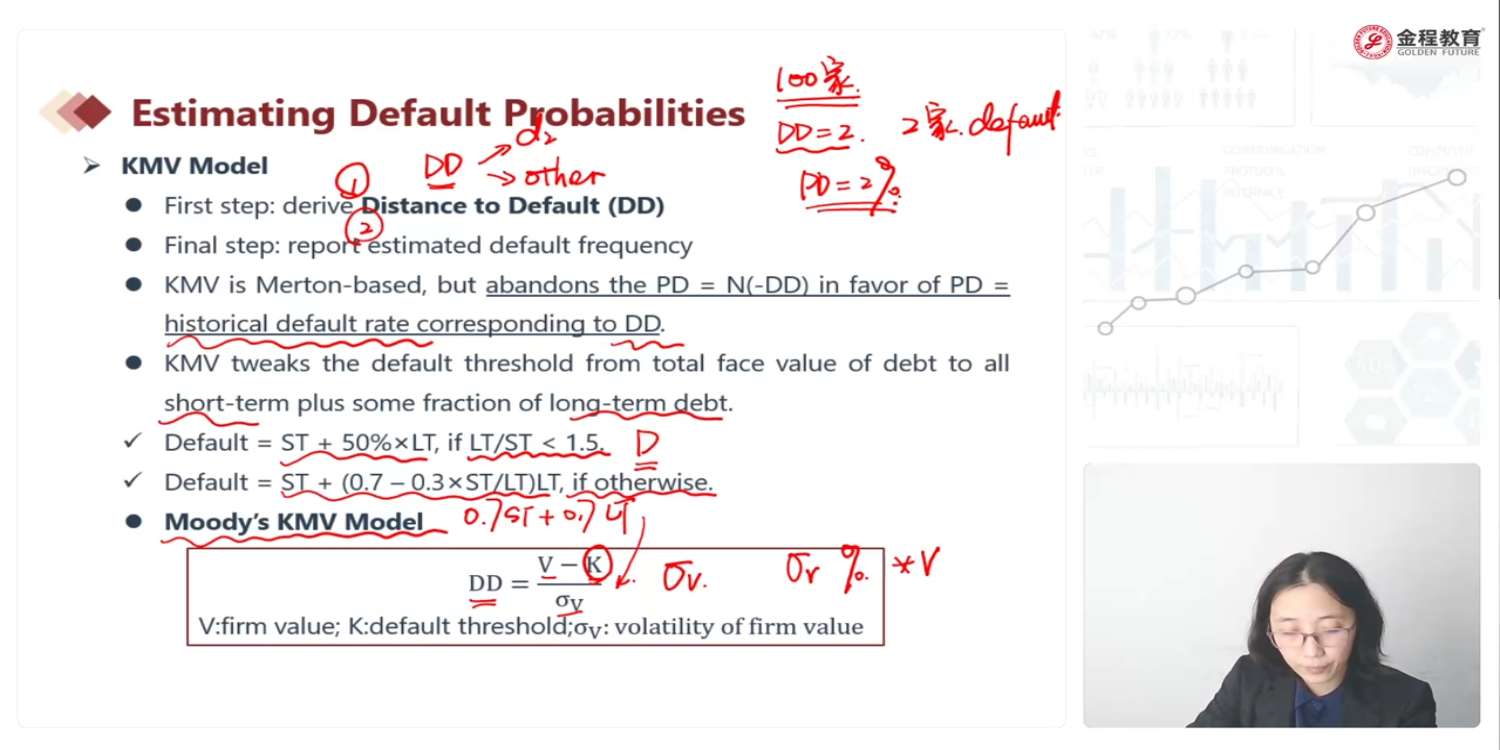 金程教育
GOLDEN FUTURE
100家.
Estimating Default Probabilities
DD = 2.
2家.default.
d2
KMV Model
DD
other
PD = 2%
①
First step: derive Distance to Default (DD)
②
Final step: report estimated default frequency
KMV is Merton-based, but abandons the PD = N(-DD) in favor of PD =
historical default rate corresponding to DD.
KMV tweaks the default threshold from total face value of debt to all
short-term plus some fraction of long-term debt.
Default = ST + 50%×LT, if LT/ST < 1.5. D
Default = ST + (0.7 – 0.3×ST/LT)LT, if otherwise.
Moody's KMV Model 0.7ST + 0.7LT
DD = (V − K)/σV
σV. σV % *V
V:firm value; K:default threshold;σV: volatility of firm value